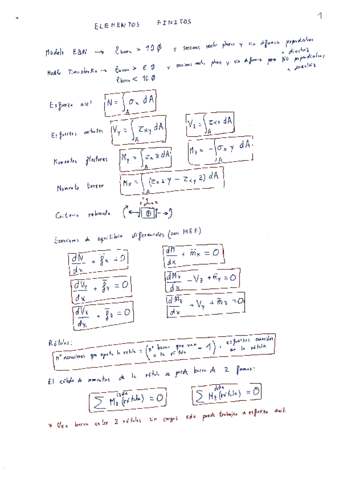 1
ELEMENTOS FINITOS
Modelo EBN → l barra > 10 ϕ y secciones rectas planas y sin diferencia perpendiculares a directriz
Modelo → l barra > 5 ϕ y secciones rectas planas y sin diferencia pero NO perpendiculares a directriz
l barra < 10 ϕ
Esfuerzo axil N = ∫_A σx dA
Esfuerzos cortantes Vy = ∫_A τxy dA Vz = ∫_A τxz dA
Momentos flectores My = ∫_A σx z dA Mz = -∫_A σx y dA
Momento torsor Mx = ∫_A (τxz y - τxy z) dA
Criterio
Ecuaciones de equilibrio diferenciales (para MEF)
dN/dx + qx = 0 dM/dx + mx = 0
dVy/dx + qy = 0 dMy/dx - Vz + my = 0
dVz/dx + qz = 0 dMz/dx + Vy + mz = 0
Rótulas:
nº ecuaciones que aporta la rótula = (nº barras que van a la rótula - 1) · esfuerzos en la rótula
El cálculo de momentos de la rótula se puede hacer de 2 formas:
∑ Mz izda (rótula) = 0 ∑ Mz dcha (rótula) = 0
* Una barra entre 2 rótulas sin cargas solo puede trabajar a esfuerzo axil.